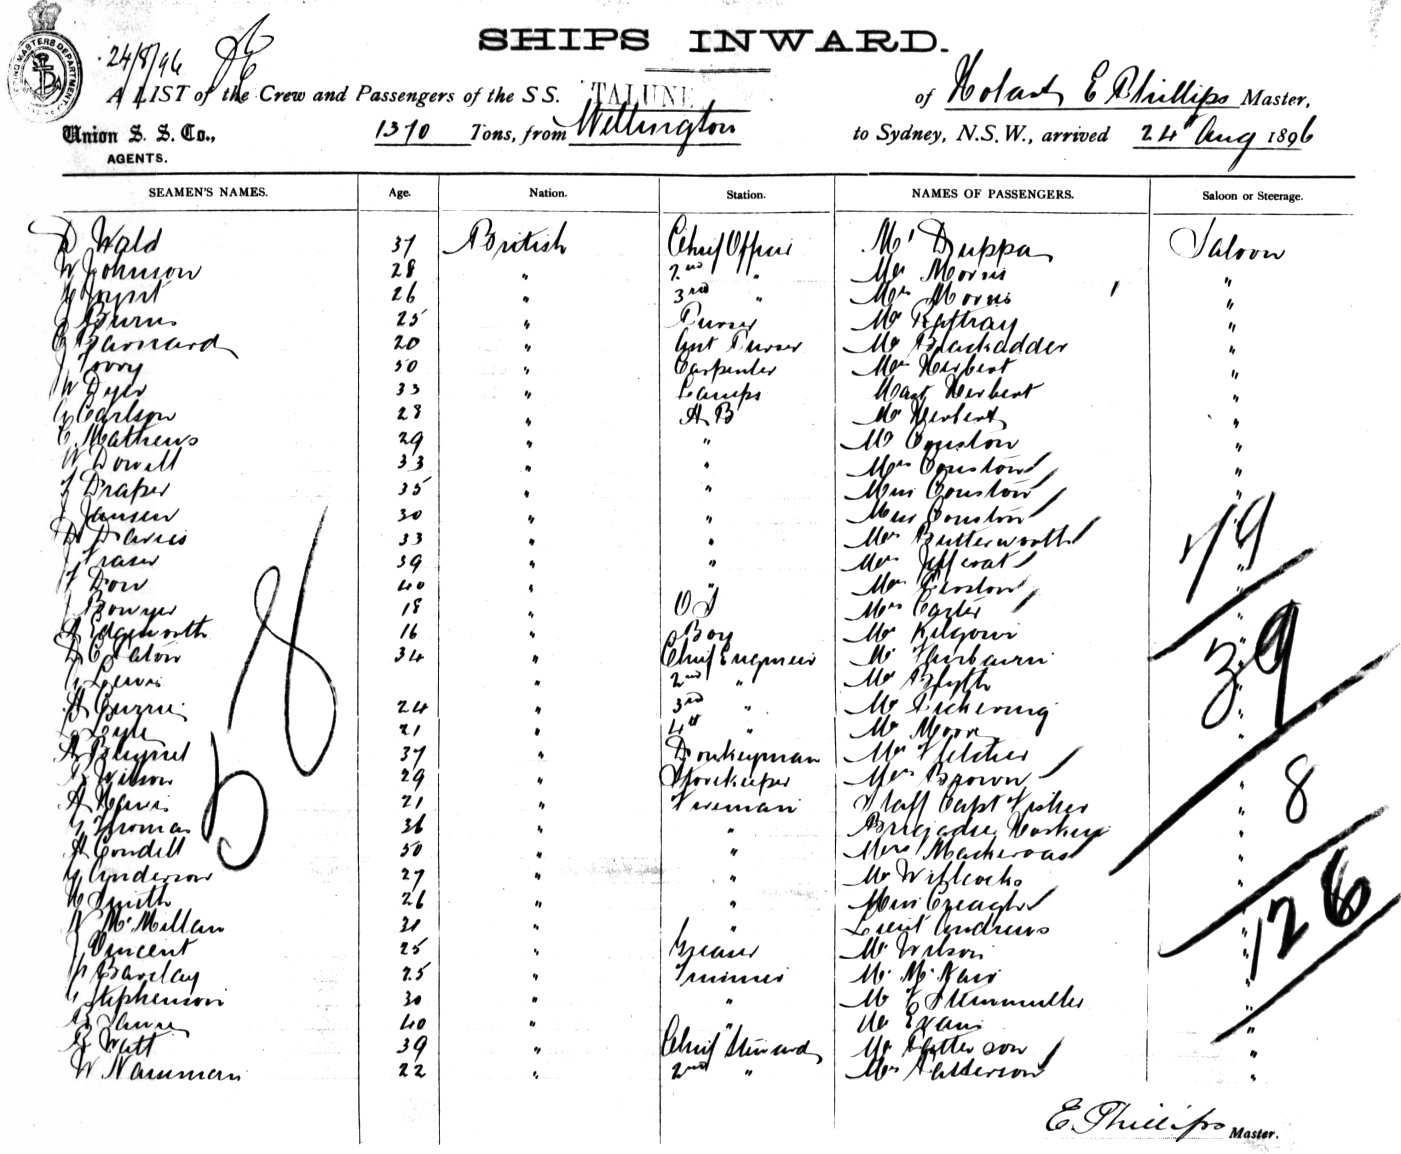 24/8/96
SHIPS INWARD.
A LIST of the Crew and Passengers of the SS. TALUNE of Hobart E Phillips Master,
Union S. S. Co., 1370 Tons, from Wellington to Sydney, N.S.W., arrived 24 Aug 1896
AGENTS.
SEAMEN'S NAMES. Age. Nation. Station. NAMES OF PASSENGERS. Saloon or Steerage.
D Wald 37 British Chief Officer Mr Duppa Saloon
W Johnson 28 " 2nd " Mr Morris "
Joynt 26 " 3rd " Mrs Morris "
J Burns 25 " Purser Mr Rattray "
Barnard 20 " Asst Purser Mr Blackadder "
J Ivory 50 " Carpenter Mrs Herbert "
W Dyer 33 " Lamps Mast Herbert "
Carlson 28 " AB Mr Herbert "
C Mathews 29 " " Mr Couston "
W Dowell 33 " " Mrs Couston "
Draper 35 " " Miss Couston "
J Jansen 30 " " Miss Couston "
D Davies 33 " " Mrs Butterworth
J Fraser 39 " " Mrs Jeffcoat 79
Dow 40 " " "
J Bowyer 18 " OS Mrs Carter "
A Edgeworth 16 " Boy Mr Kilgour "
34 " Chief Engineer Mr Fairbairn 39
Lewis " 2nd " Mr Blyth "
A 24 " 3rd " Mr Pickering "
Lyle 21 " 4th " Mr Moore "
A 37 " Donkeyman Mr Fletcher "
Wilson 29 " Storekeeper Mrs Brown " 8
A 21 " Fireman Staff Capt Fisher "
Thomas 36 " " Brigadier Hoskin "
A Condell 50 " " Mackerras "
Anderson 27 " " Mr Willcocks "
Smith 26 " " Miss Creagh "
McMillan 31 " " Lieut Andrews " 126
J Vincent 25 " Greaser Mr Wilson "
Barclay 25 " Trimmer Mr McNair "
Stephenson 30 " " Mr "
40 " " Mr Evans "
Watt 39 " Chief Steward Mr Patterson "
W Naumann 22 " 2nd " Mrs Patterson "
58
E. Phillips Master.